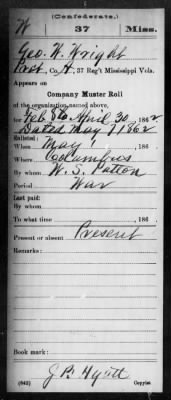 (Confederate.)
W 37 Miss.
Geo. W. Wright
Co. A, 37 Reg't Mississippi Vols.
Appears on
Company Muster Roll
of the organization named above,
for Feb 8 to April 30, 1862
Dated May 7 1862
Enlisted:
When May 1, 186
Where Columbus
By whom W. S. Patton
Period War
Last paid:
By whom
To what time , 186 .
Present or absent Present
Remarks:
Book mark:
J. B. Hyatt
(642) Copyist.